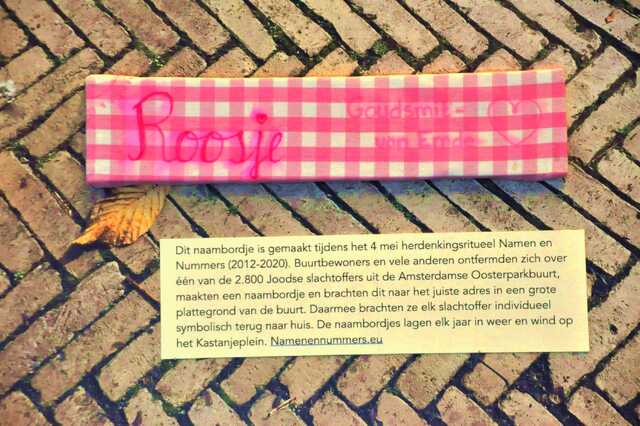 Roosje
Goudsmit-
van Emde-
Dit naambordje is gemaakt tijdens het 4 mei herdenkingsritueel Namen en
Nummers (2012-2020). Buurtbewoners en vele anderen ontfermden zich over
één van de 2.800 Joodse slachtoffers uit de Amsterdamse Oosterparkbuurt,
maakten een naambordje en brachten dit naar het juiste adres in een grote
plattegrond van de buurt. Daarmee brachten ze elk slachtoffer individueel
symbolisch terug naar huis. De naambordjes lagen elk jaar in weer en wind op
het Kastanjeplein. Namenennummers.eu